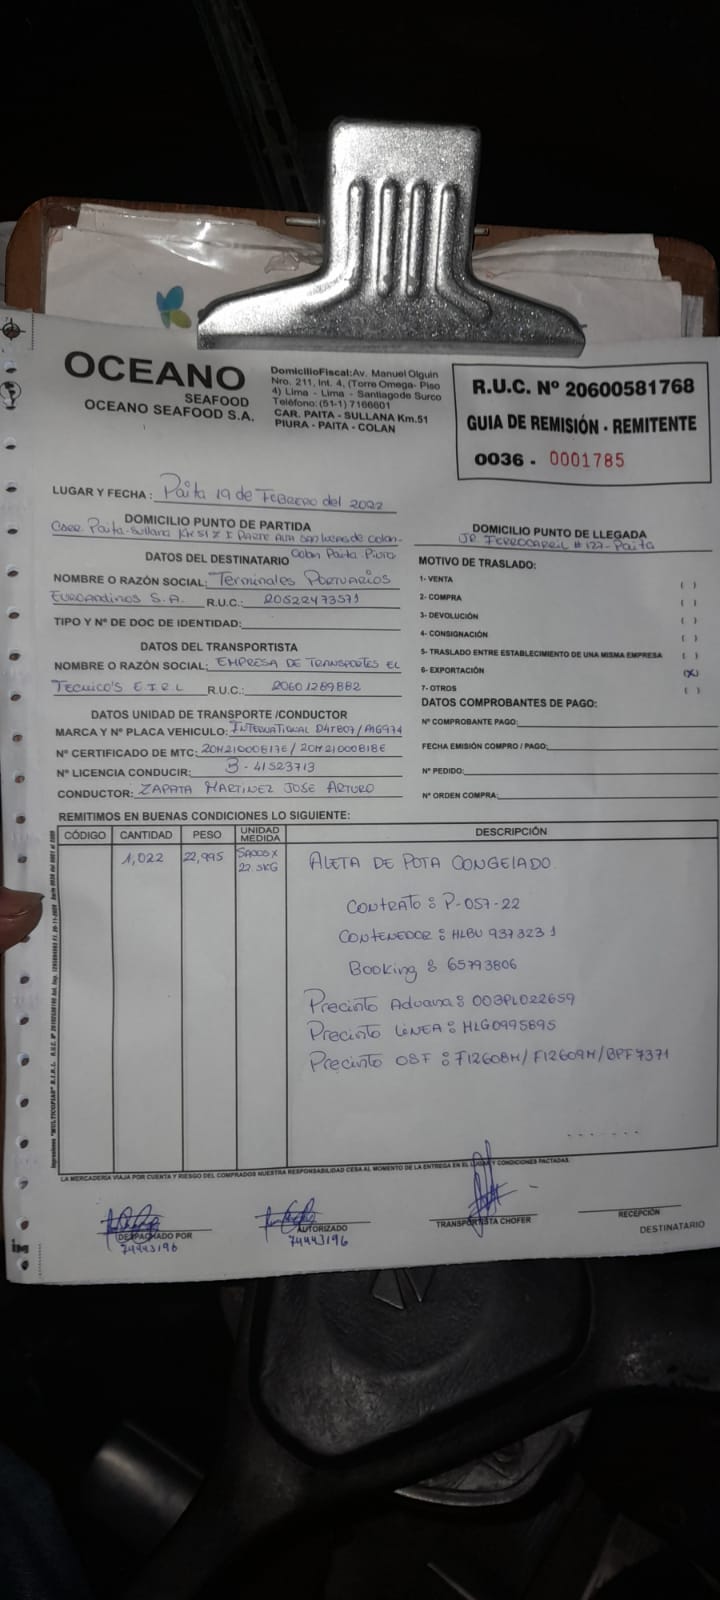 OCEANO
SEAFOOD
OCEANO SEAFOOD S.A.
DomicilioFiscal:Av. Manuel Olguin
Nro. 211, Int. 4, (Torre Omega- Piso
4) Lima - Lima - Santiagode Surco
Teléfono:(51-1) 7166601
CAR. PAITA - SULLANA Km.51
PIURA - PAITA - COLAN
R.U.C. Nº 20600581768
GUIA DE REMISIÓN - REMITENTE
0036 - 0001785
LUGAR Y FECHA : Paita 19 de FEBRERO del 2022
DOMICILIO PUNTO DE PARTIDA
Carr. Paita-Sullana KM 51 Z I PARTE ALTA San Lucas de Colan-
Colan Paita Piura
DOMICILIO PUNTO DE LLEGADA
JR FERROCARRIL # 127- Paita
DATOS DEL DESTINATARIO
NOMBRE O RAZÓN SOCIAL: Terminales Portuarios
EUROANDINOS S.A. R.U.C.: 20522473571
TIPO Y Nº DE DOC DE IDENTIDAD:
DATOS DEL TRANSPORTISTA
NOMBRE O RAZÓN SOCIAL: EMPRESA DE TRANSPORTES EL
TECNICO'S E.I.R.L R.U.C.: 20601289882
DATOS UNIDAD DE TRANSPORTE /CONDUCTOR
MARCA Y Nº PLACA VEHICULO: INTERNATIONAL D4T807/A1G974
Nº CERTIFICADO DE MTC: 20M21000817E/ 20M21000818E
Nº LICENCIA CONDUCIR: B - 41523713
CONDUCTOR: ZAPATA MARTINEZ JOSE ARTURO
MOTIVO DE TRASLADO:
1- VENTA ( )
2- COMPRA ( )
3- DEVOLUCIÓN ( )
4- CONSIGNACIÓN ( )
5- TRASLADO ENTRE ESTABLECIMIENTO DE UNA MISMA EMPRESA ( )
6- EXPORTACIÓN (X)
7- OTROS ( )
DATOS COMPROBANTES DE PAGO:
Nº COMPROBANTE PAGO:
FECHA EMISIÓN COMPRO / PAGO:
Nº PEDIDO:
Nº ORDEN COMPRA:
REMITIMOS EN BUENAS CONDICIONES LO SIGUIENTE:
CÓDIGO CANTIDAD PESO UNIDAD MEDIDA DESCRIPCIÓN
1,022 22,995 SACOS X 22.5KG ALETA DE POTA CONGELADO
CONTRATO : P-057-22
CONTENEDOR : HLBU 937323 1
Booking : 65793806
Precinto Aduana : 003PL022659
Precinto LINEA : HLG0995895
Precinto OSF : F12608M/ F12609M/BPF7371
LA MERCADERÍA VIAJA POR CUENTA Y RIESGO DEL COMPRADOS NUESTRA RESPONSABILIDAD CESA AL MOMENTO DE LA ENTREGA EN EL LUGAR Y CONDICIONES PACTADAS.
DESPACHADO POR
74443196
AUTORIZADO
74443196
TRANSPORTISTA CHOFER
RECEPCIÓN
DESTINATARIO